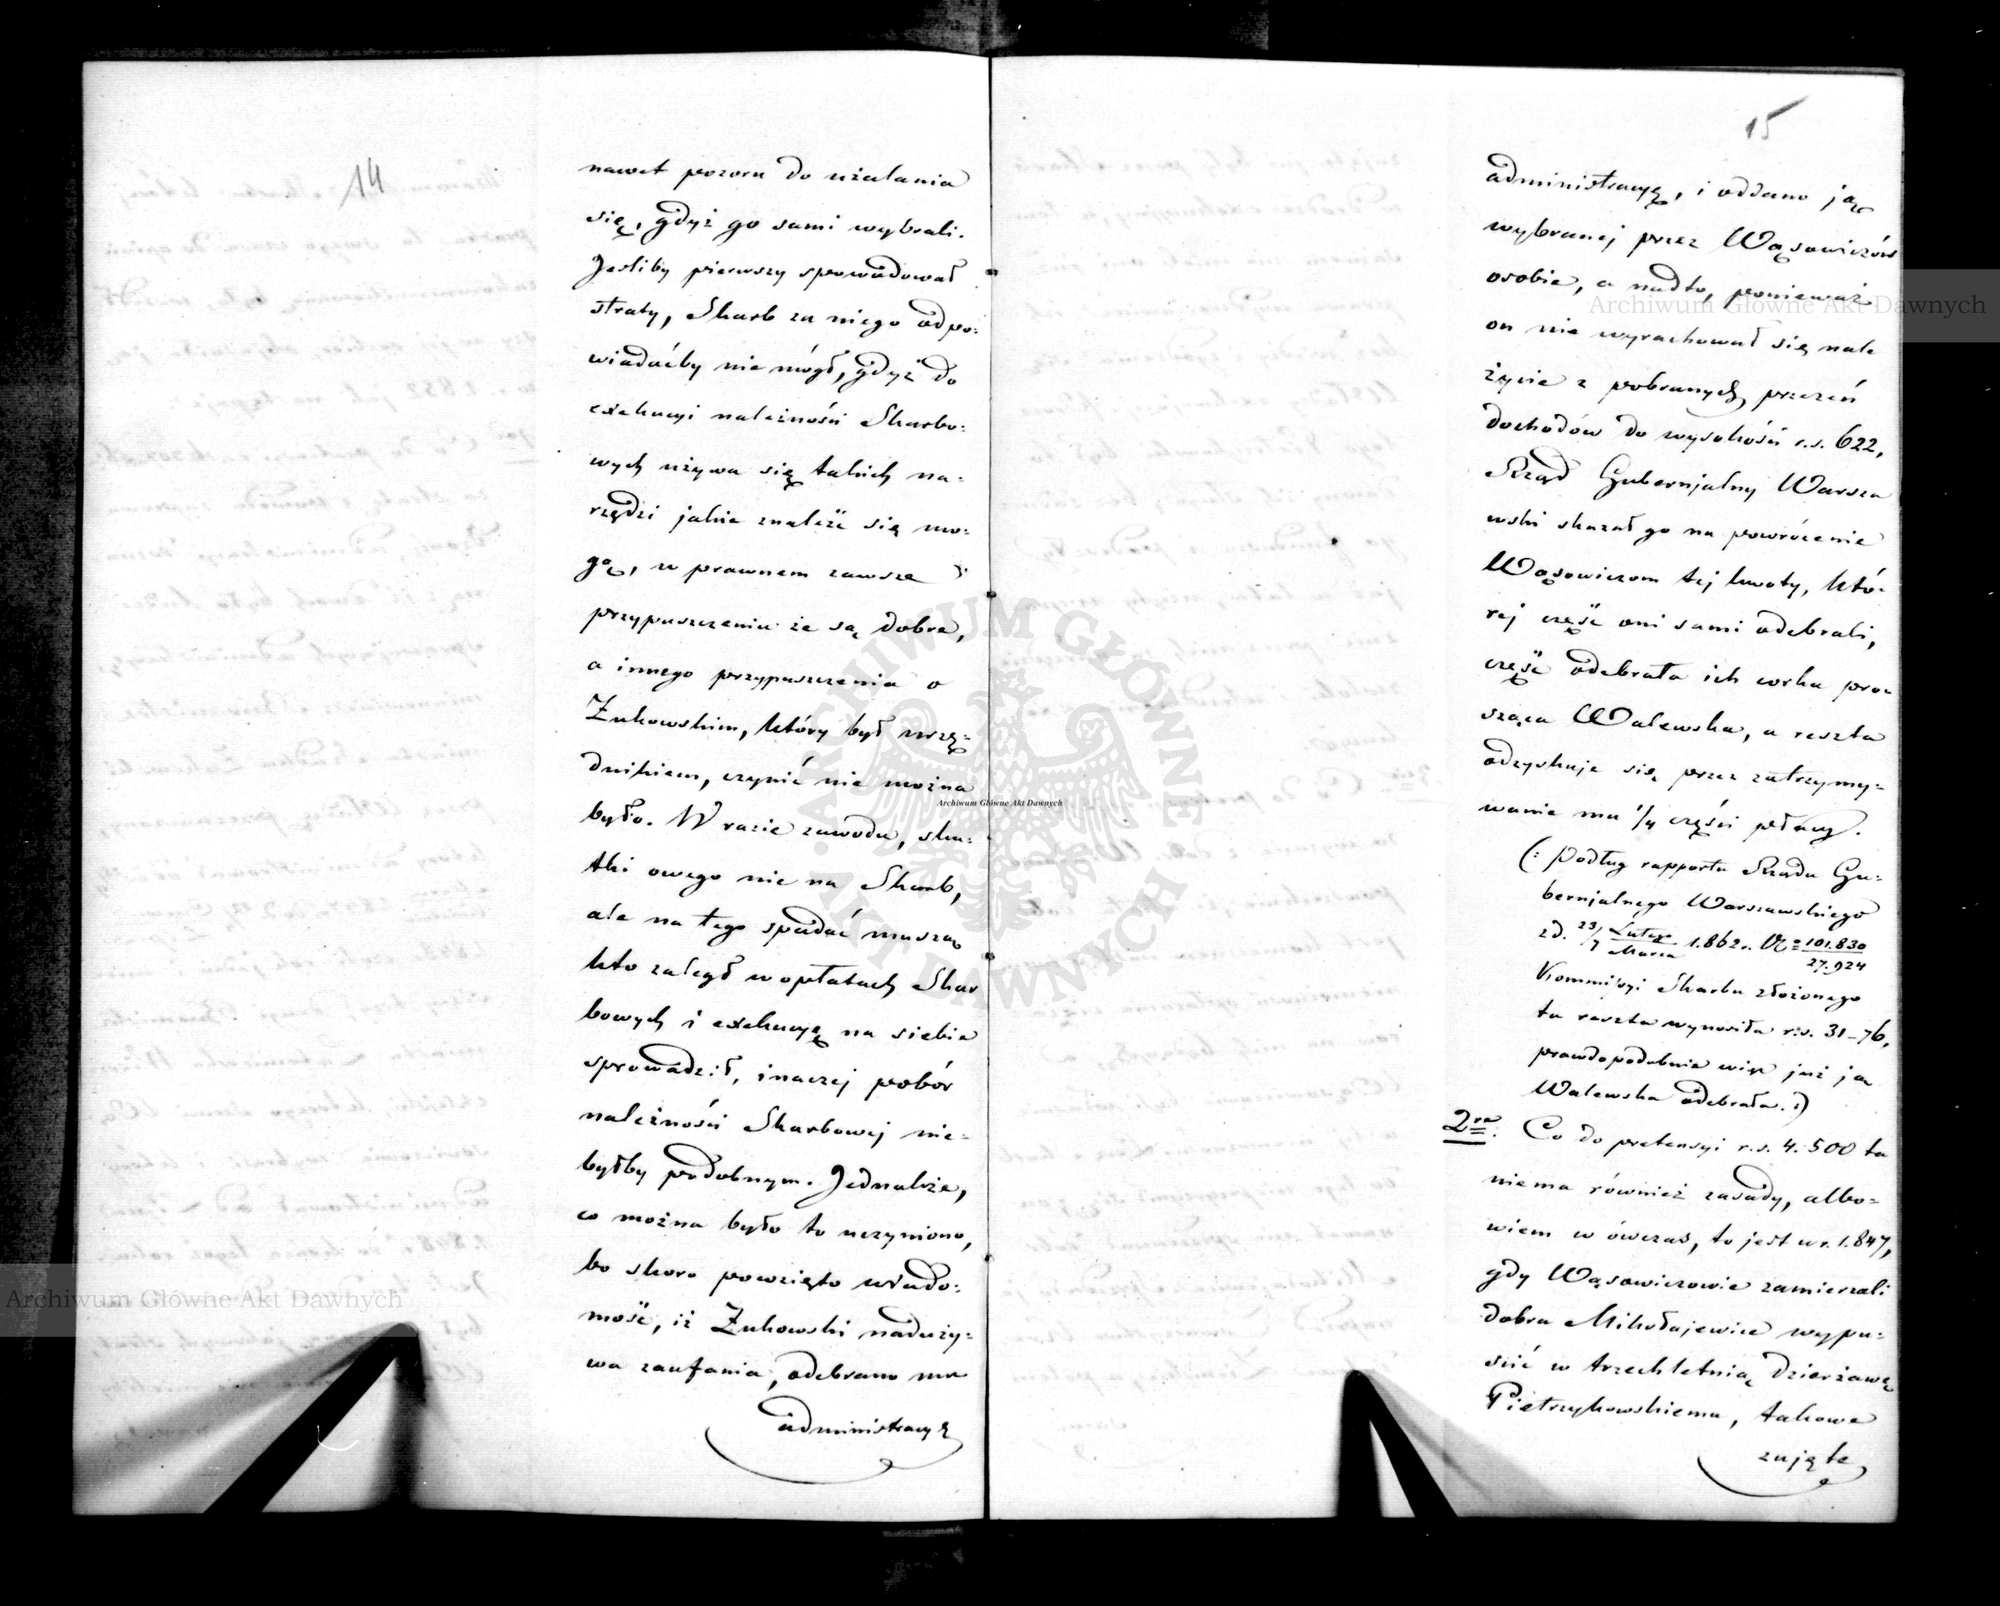 14
nawet pozoru do użalania
się, gdyż go sami wybrali.
Jeśliby pierwszy spowodował
straty, Skarb za niego odpo:
wiadaćby nie mógł, gdyż do
exekucyi należności Skarbo:
wych używa się takich na:
rzędzi jakie znaleźć się mo:
gą, w prawnem zawsze
przypuszczeniu że są dobre,
a innego przypuszczenia o
Żukowskim, który był urzę:
dnikiem, czynić nie można
było. W razie zawodu, sku:
tki owego nie na Skarb,
ale na tego spadać muszą
kto zaległ w opłatach Skar
bowych i exekucyę na siebie
sprowadził, inaczej pobór
należności Skarbowej nie:
byłby podobnym. Jednakże,
co można było to uczyniono,
bo skoro powzięto wiado:
mość, iż Żukowski naduży:
wa zaufania, odebrano mu
administracyę
15
administracyę, i oddano ją
wybranej przez Wąsowiczów
osobie, a nadto, ponieważ
on nie wyrachował się nale
życie z pobranych przezeń
dochodów do wysokości r.s. 622,
Rząd Gubernjalny Warsza
wski skazał go na powrócenie
Wąsowiczom tej kwoty, któ:
rej część oni sami odebrali,
część odebrała ich córka pro:
sząca Walewska, a reszta
odzyskuje się przez zatrzymy:
wanie mu 1/4 części płacy.
(: Podług rapportu Rządu Gu:
bernjalnego Warszawskiego
zd. 23/7 Lutego/Marca 1.862 r. N= 101.830/27.924
Kommissyi Skarbu złożonego
ta reszta wynosiła r.s. 31-76,
prawdopodobnie więc już ją
Walewska odebrała. :)
2re. Co do pretensyi r.s. 4.500 ta
niema również zasady, albo:
wiem w ówczas, to jest w r. 1.847,
gdy Wąsowiczowie zamierzali
dobra Mikołajewice wypu:
ścić w trzechletnią dzierżawę
Pietrzykowskiemu, takowe
zajęte
Archiwum Główne Akt Dawnych
Archiwum Główne Akt Dawnych
Archiwum Główne Akt Dawnych
ARCHIWUM GŁÓWNE AKT DAWNYCH